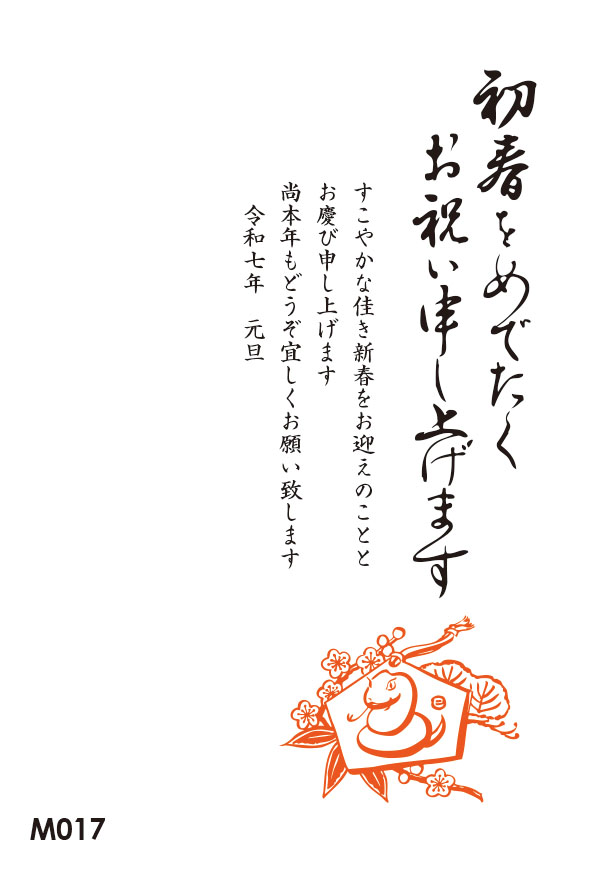 初春をめでたく
お祝い申し上げます
すこやかな佳き新春をお迎えのことと
お慶び申し上げます
尚本年もどうぞ宜しくお願い致します
令和七年　元旦
M017